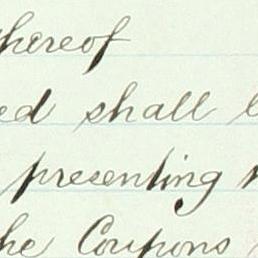 thereof
ed shall
presenting
he Coupons